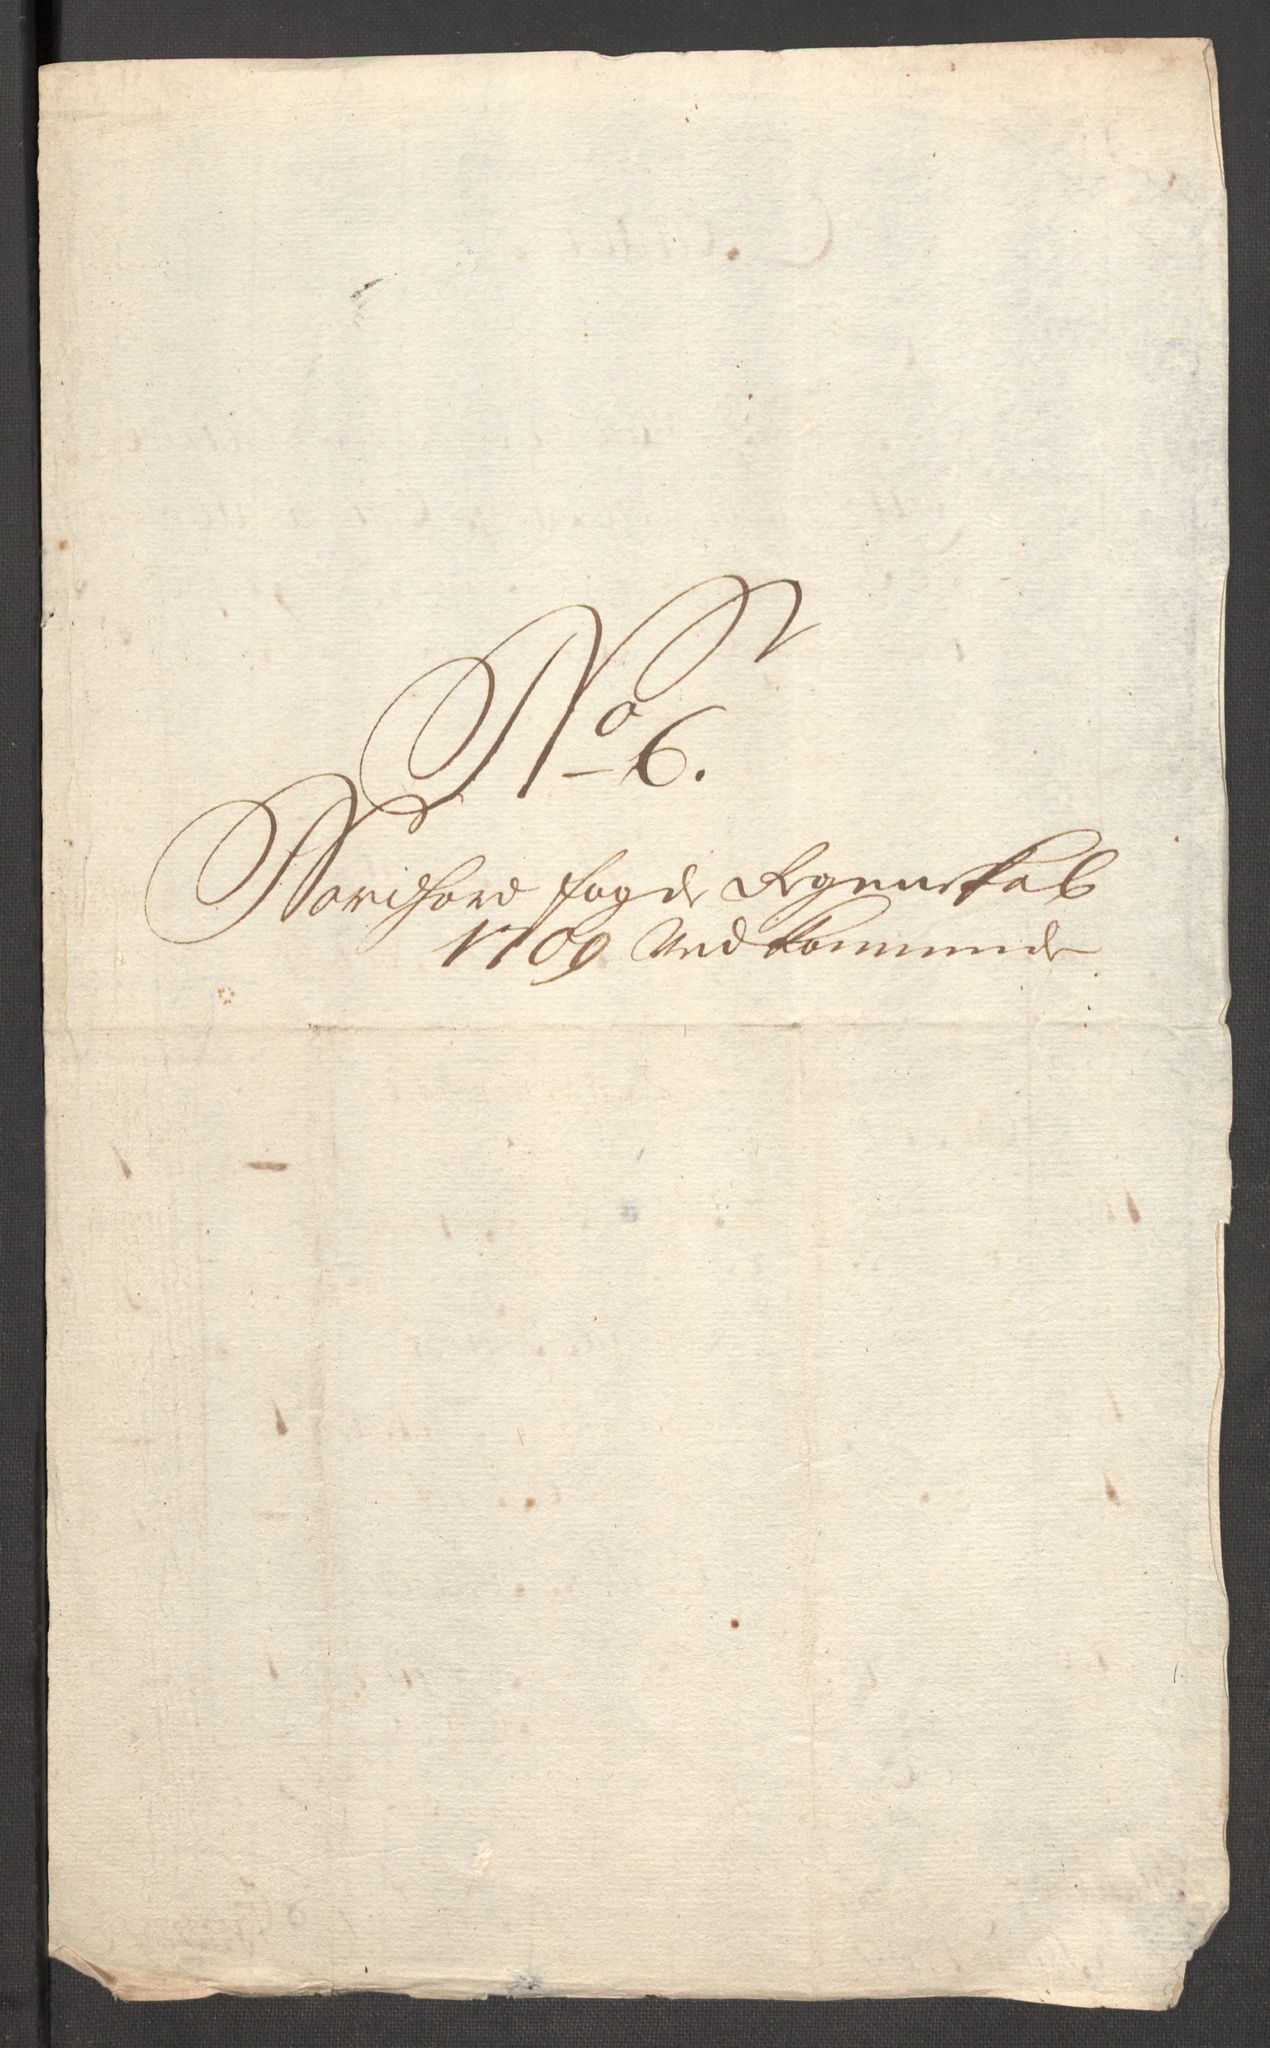 No 6.
Nordfiord fogde Regenskab
1709 Vedkommende